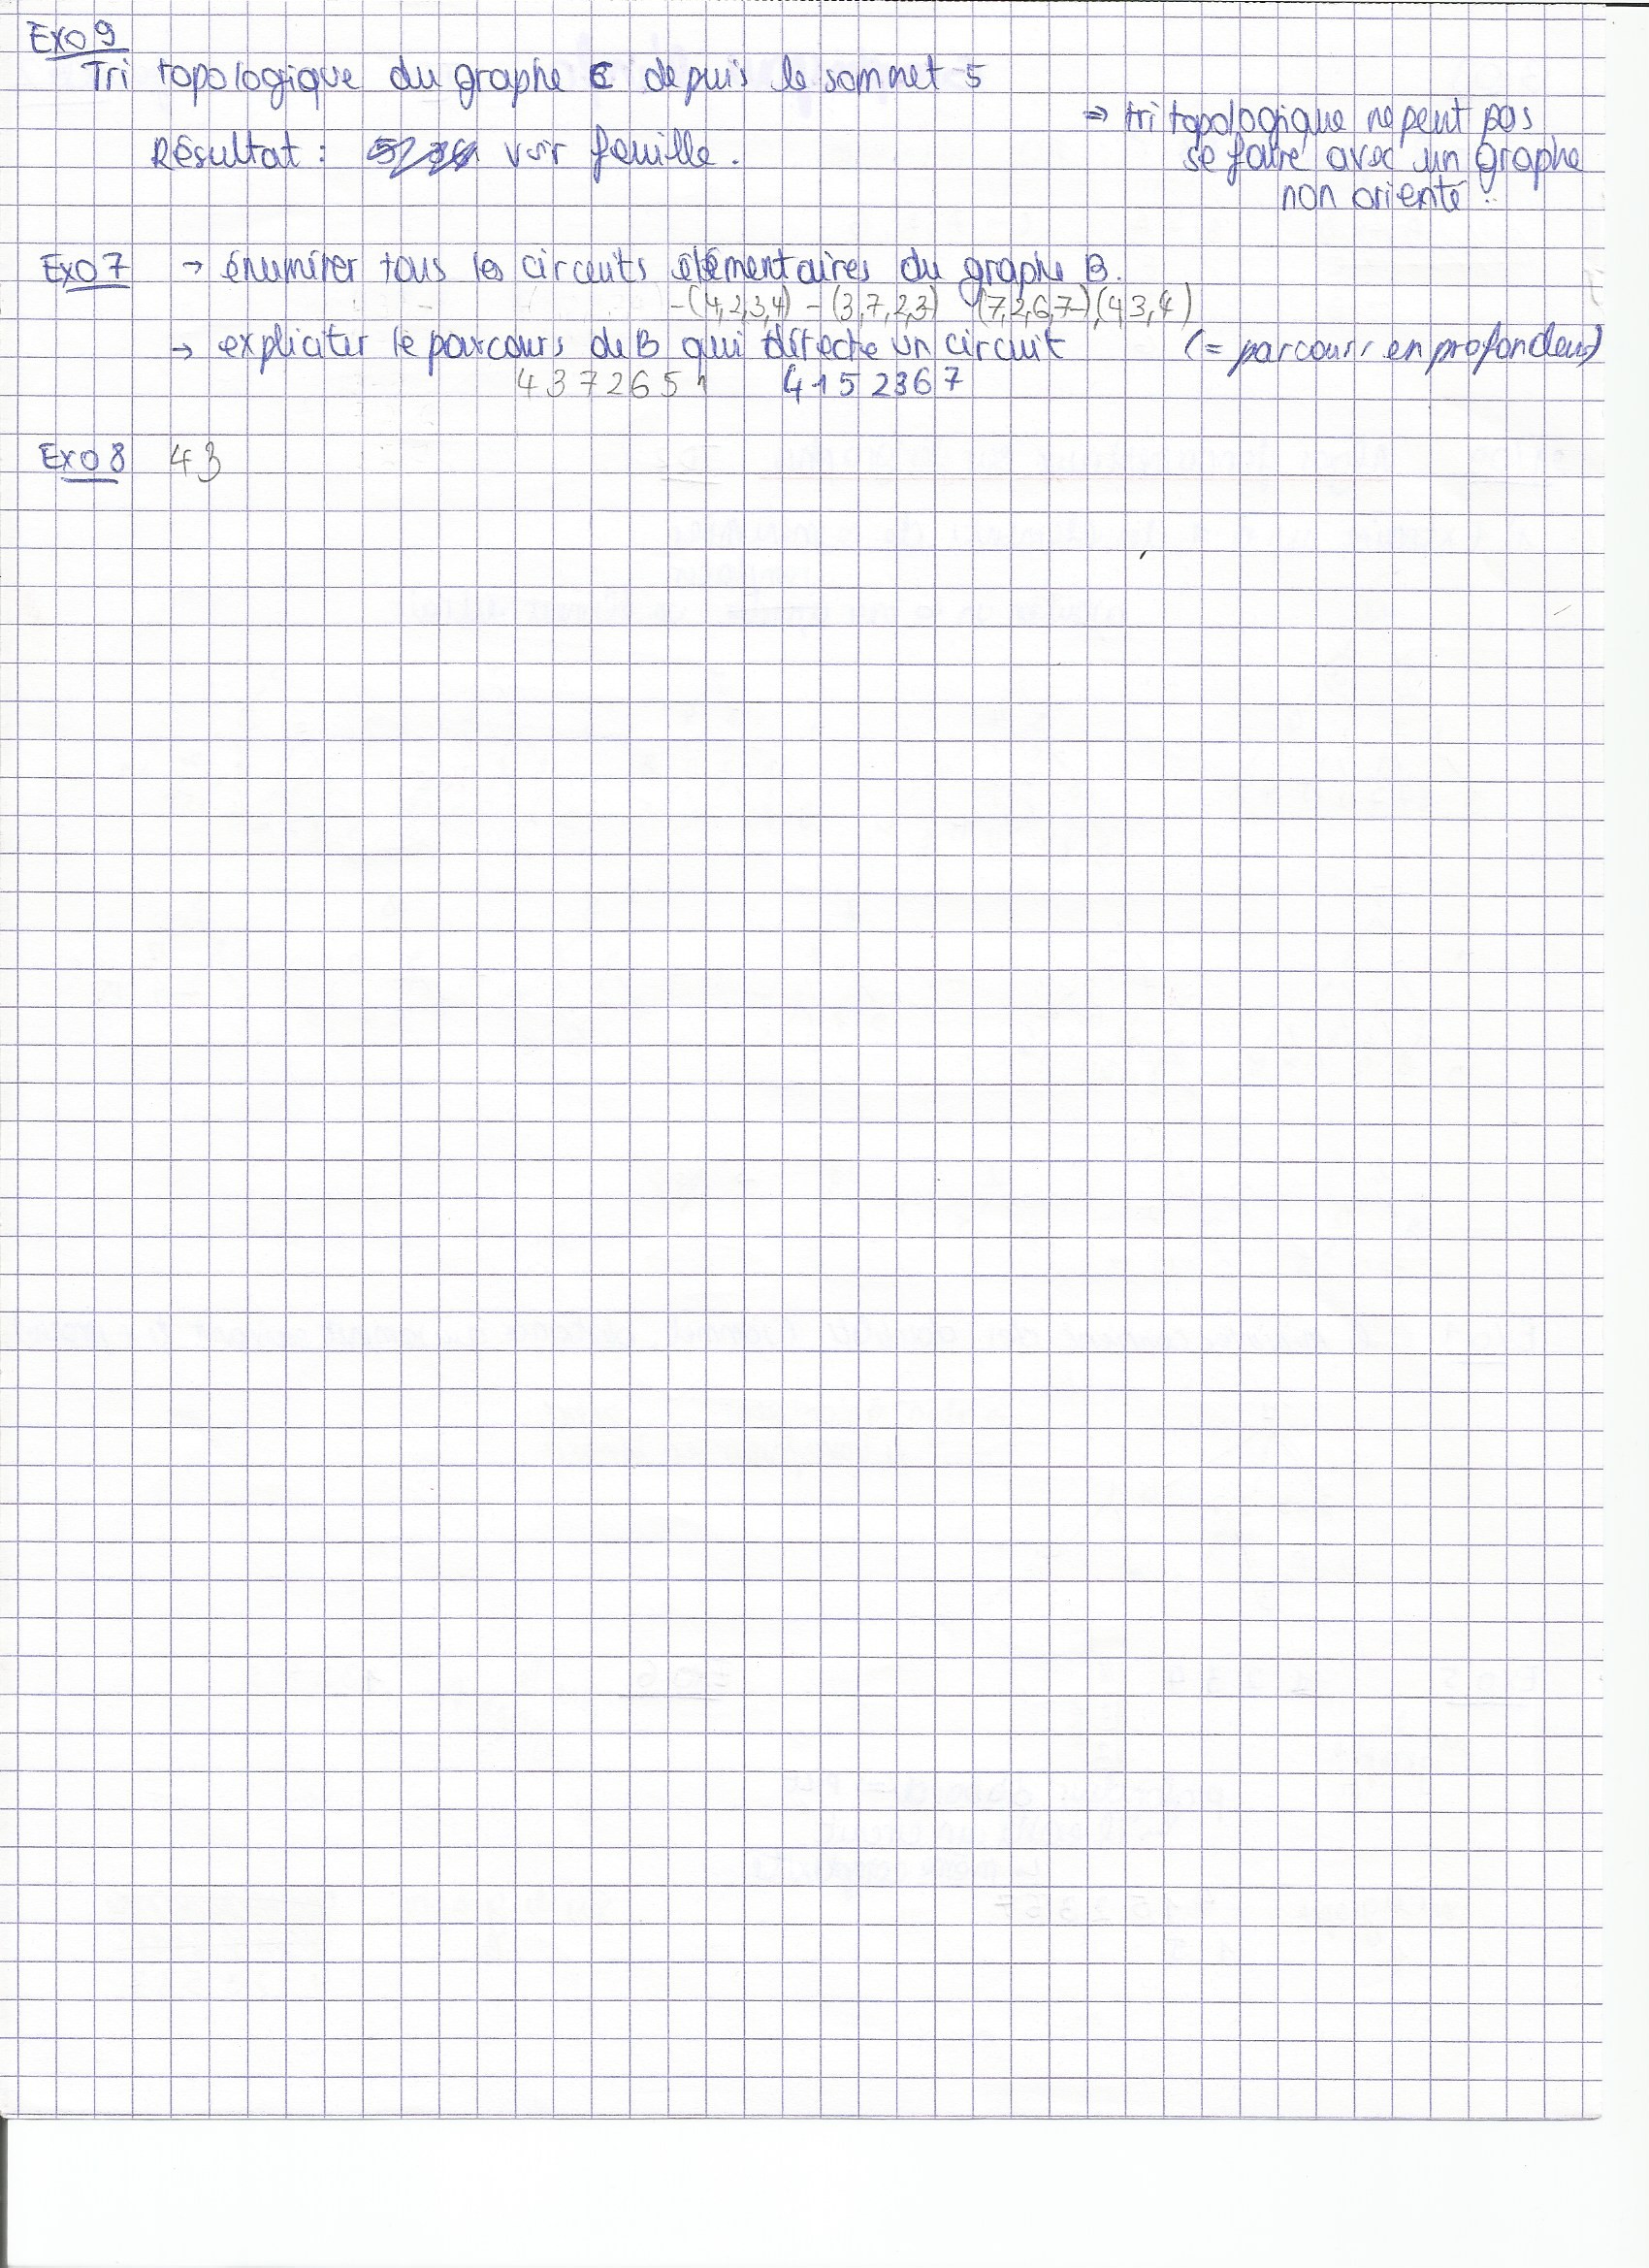 Exo 9
Tri topologique du graphe C depuis le sommet 5
⇒ tri topologique ne peut pas
se faire avec un graphe
non orienté
Résultat : voir feuille.
Exo 7 → énumérer tous les circuits élémentaires du graphe B.
-(4,2,3,4) - (3,7,2,3) (7,2,6,7) (4,3,4)
→ expliciter le parcours de B qui détecte un circuit (= parcours en profondeur)
4 3 7 2 6 5 1 4 1 5 2 3 6 7
Exo 8 4 3